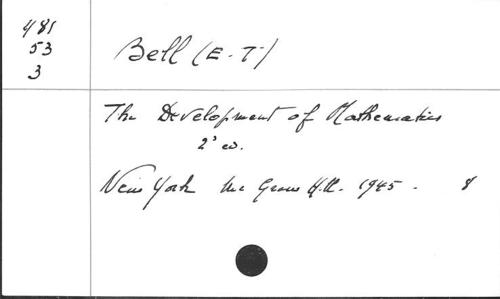 481
53
3
Bell (E-T-)
The Development of Mathematics
2' ed.
New York Mc Graw Hill. 1945. 8